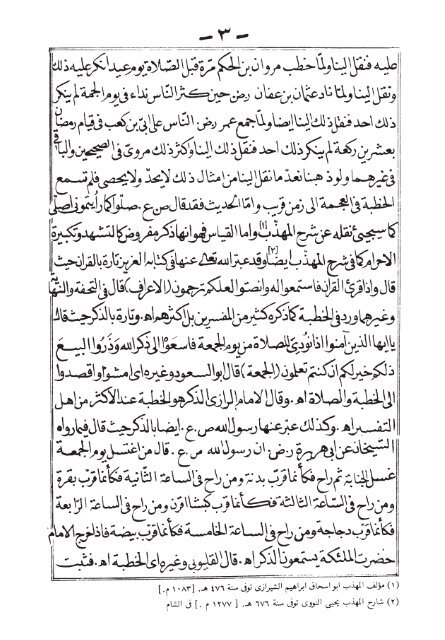 — ٣ —
عليه فنقل الينا ولمّا خطب مروان بن الحكم مرة قبل الصّلاة يوم عيد انكر عليه ذلك
ونقل الينا ولمّا زاد عثمان بن عفان رض حين كثر النّاس نداء فى يوم الجمعة لم ينكر
ذلك احد فنقل ذلك الينا ايضا ولمّا جمع عمر رض النّاس على ابىّ بن كعب فى قيام رمضان
بعشرين ركعة لم ينكر ذلك احد فنقل ذلك الينا وكثر ذلك مروىّ فى الصحيحين والباقى
فى غيرهما ولو ذهبنا نعدّ ما نقل الينا من امثال ذلك لا يحدّ ولا يحصى فلم تسمع
الخطبة فى العجمة الى زمن قريب وامّا الحديث فقد قال ص ع. صلّوا كما رأيتمونى اصلّى
كما سيجيئ نقله عن شرح المهذّب [١] واما القياس فهو انها ذكر مفروض كالتشهد وتكبيرة
الاحرام كما فى شرح المهذب ايضا [٢] وقد عبّر الله تعالى عنها فى كتابه العزيز تارة بالقرآن حيث
قال واذا قرئ القرآن فاستمعوا له وانصتوا لعلكم ترحمون (الاعراف) قال فى التحفة والنهاية
وغيرهما ورد فى الخطبة كما ذكره كثير من المفسرين بل اكثرهم اه. وتارة بالذكر حيث قال
يا ايها الذين آمنوا اذا نودى للصلاة من يوم الجمعة فاسعوا الى ذكر الله وذروا البيع
ذلكم خير لكم ان كنتم تعلمون (الجمعة) قال ابو السعود وغيره اى امشوا واقصدوا
الى الخطبة والصلاة اه. وقال الامام الرازى الذكر هو الخطبة عند الاكثر من اهل
التفسير اه. وكذلك عبّر عنها رسول الله ص ع. ايضا بالذكر حيث قال فيما رواه
الشيخان عن ابى هريرة رض ان رسول الله ص ع. قال من اغتسل يوم الجمعة
غسل الجنابة ثم راح فكأنما قرّب بدنة ومن راح فى الساعة الثانية فكأنما قرّب بقرة
ومن راح فى السّاعة الثالثة فكأنما قرّب كبشا اقرن ومن راح فى الساعة الرّابعة
فكأنما قرّب دجاجة ومن راح فى الساعة الخامسة فكأنما قرّب بيضة فاذا خرج الامام
حضرت الملئكة يستمعون الذكر اه. قال القليوبى وغيره اى الخطبة اه. فثبت
(١) مؤلف المهذب ابو اسحاق ابراهيم الشيرازى توفى سنة ٤٧٦ هـ. [١٠٨٣ م.]
(٢) شارح المهذب يحيى النووى توفى سنة ٦٧٦ هـ. [١٢٧٧ م.] فى الشام